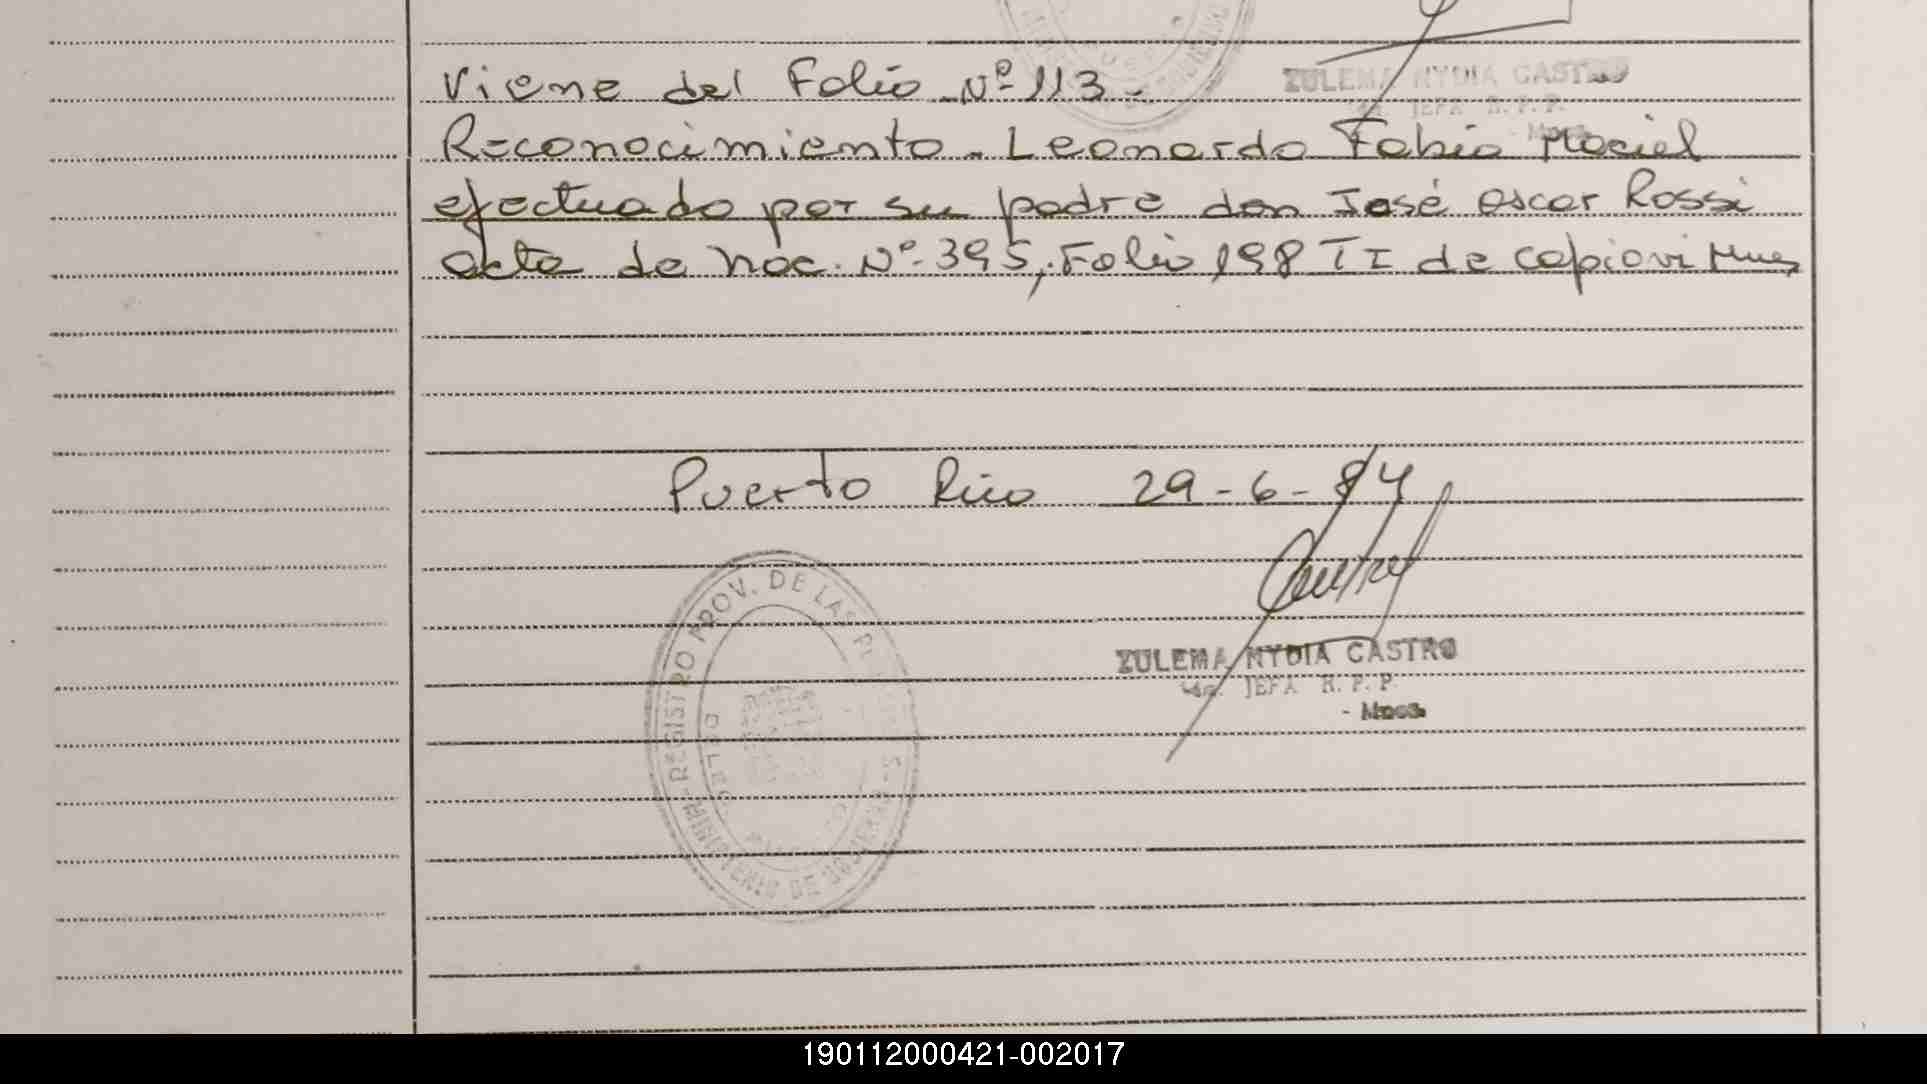 ZULEMA NYDIA CASTRO
JEFA R. P. P.
Viene del Folio Nº 113.
Reconocimiento. Leonardo Fabio Maciel
efectuado por su padre don José Oscar Rossi
acta de nac. Nº 395, Folio 198 TI de Capioví Mnes
Puerto Rico 29-6-84
REGISTRO PROV. DE LAS
MINISTERIO DE GOBIERNO
ZULEMA NYDIA CASTRO
JEFA R. P. P.
- Mnes.
190112000421-002017